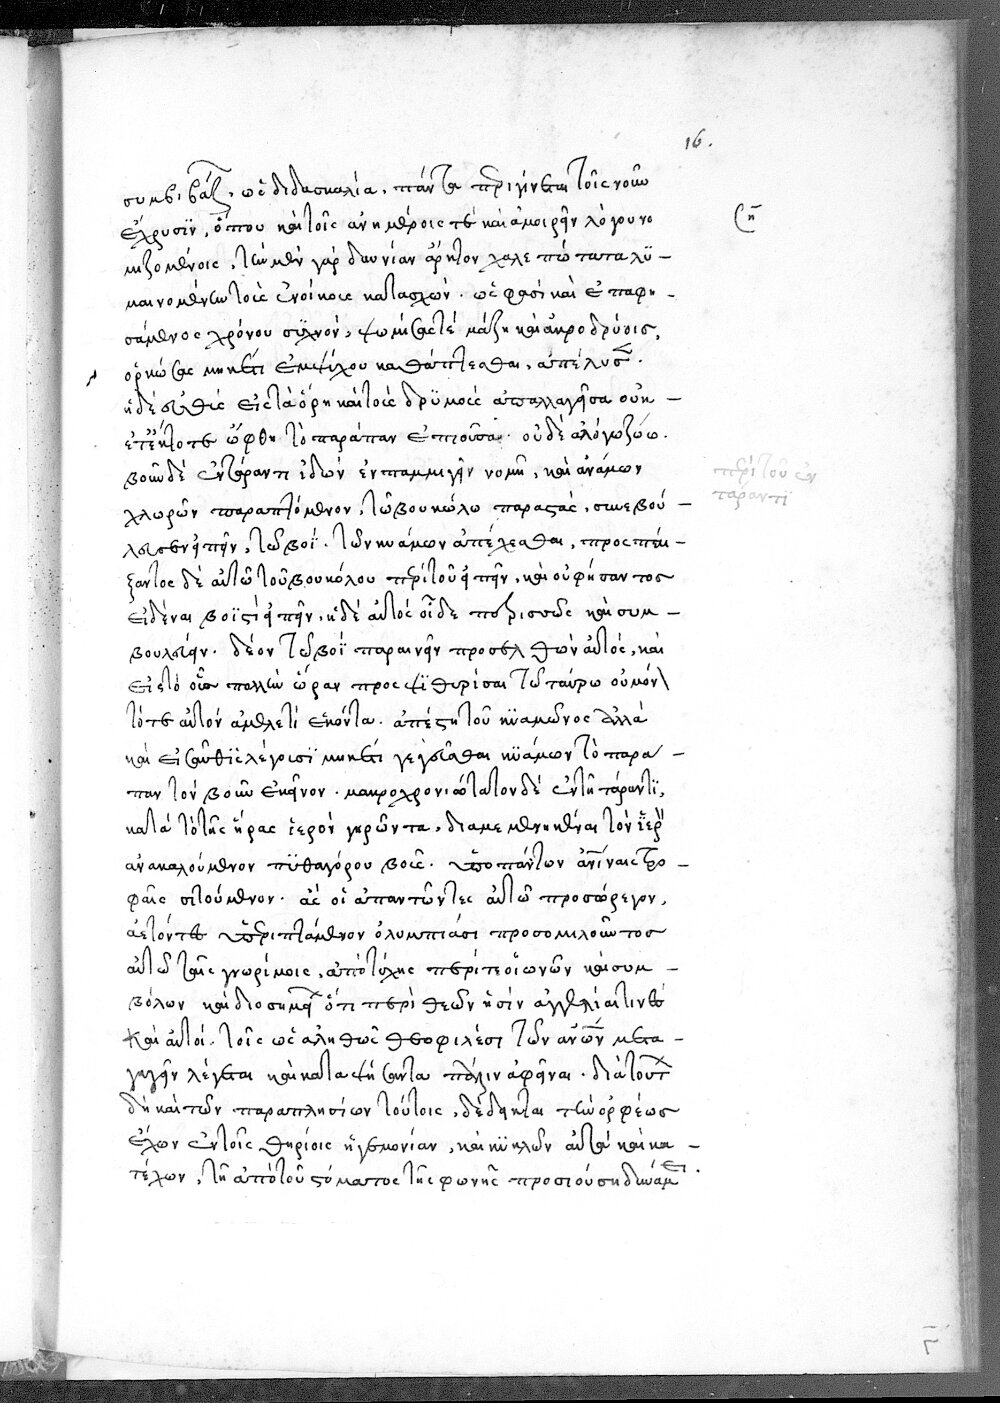 16.
συμβιβάζ. ὡς διδασκαλία, πάντα περιγίνεται τοῖς νοῦν
ἔχουσϊν, ὅπου καὶ τοῖς ἀνημέροις τε καὶ ἀμοιρεῖν λόγου νο
η
μιζομένοις, τὴν μὲν γὰρ δαυνίαν ἄρκτον χαλεπώτατα λϋ-
μαινομένην τοὺς ἐνοίκους κατασχών. ὥς φασὶ καὶ ἐπαφη-
σάμενος χρόνου σϋχνόν, ψωμίσας τὲ μάζῃ καὶ ἀκροδρύοις,
ὁρκώσας μηκέτι ἐμψύχου καθάπτεσθαι, ἀπέλυσε.
ἡ δὲ εὐθὺς εἰς τὰ ὄρη καὶ τοὺς δρϋμοὺς ἀπαλλαγεῖσα οὐκ-
ἔτ' ἔκτοτε ὤφθη τὸ παράπαν ἐπιοῦσα. οὐδὲ ἀλόγω ζώω.
βοῦν δὲ ἐν τάραντι ἰδὼν ἐν παμμιγεῖ νομῇ, καὶ κυάμων
χλωρῶν παραπτόμενον, τῶ βουκόλω παραστάς, συνεβού-
λευσεν εἰπεῖν, τῶ βοΐ. τῶν κυάμων ἀπέχεσθαι, προσπαί-
ξαντος δὲ αὐτῶ τοῦ βουκόλου περὶ τοῦ εἰπεῖν, καὶ οὐ φήσαντος
εἰδέναι βοϊστὶ εἰπεῖν, εἰ δὲ αὐτὸς οἶδε περισσῶς καὶ συμ-
βουλεύειν. δέον τῶ βοῒ παραινεῖν προσελθὼν αὐτός, καὶ
εἰς τὸ οὖς πολλὴν ὥραν προσψϊθυρίσας τῶ ταύρω οὐ μόν
τότε αὐτὸν ἀμελετὶ ἑκόντα. ἀπέστη τοῦ κϋαμῶνος ἀλλὰ
καὶ εἰσαῦθϊς λέγουσϊ μηκέτι γεγεῦσθαι κϋάμων τὸ παρα-
παν τὸν βοῦν ἐκεῖνον. μακροχρονιώτατον δὲ ἐν τῆ τάραντϊ,
κατὰ τὸ τῆς ἥρας ἱερὸν γηρῶντα, διαμεμενηκέναι τὸν ἱερὸν
ἀνακαλούμενον πϋθαγόρου βοῦν. ὑπὸ πάντων ἀνίναις τρο-
φαῖς σιτούμενον. ἃς οἱ ἀπαντῶντες αὐτῶ προσώρεγον,
ἀετόν τε ὑπεριπτάμενον ὀλυμπίασι προσομιλοῦντος
αὐτῶ ταῖς γνωρίμοις, ἀπὸ τύχης περί τε οἰωνῶν καὶ συμ-
βόλων καὶ διοσημειῶν ὅτι περὶ θεῶν εἰσὶν ἀγγελίαι τινὲς
καὶ αὐτοί. τοῖς ὡς ἀληθῶς θεοφιλέσι τῶν ἀνῶν μετα-
γαγεῖν λέγεται καὶ καταψήσαντα πάλιν ἀφεῖναι. διὰ τούτ
δὴ καὶ τῶν παραπλησίων τούτοις, δέδεικται τὴν ὀρφέως
ἔχων ἐν τοῖς θηρίοις ἡγεμονίαν, καὶ κϋκλῶν αὐτὰ καὶ κα-
τέχων, τῆ ἀπὸ τοῦ στόματος τῆς φωνῆς προσιούση δυνάμει.
περὶ τοῦ ἐν
ταραντϊ